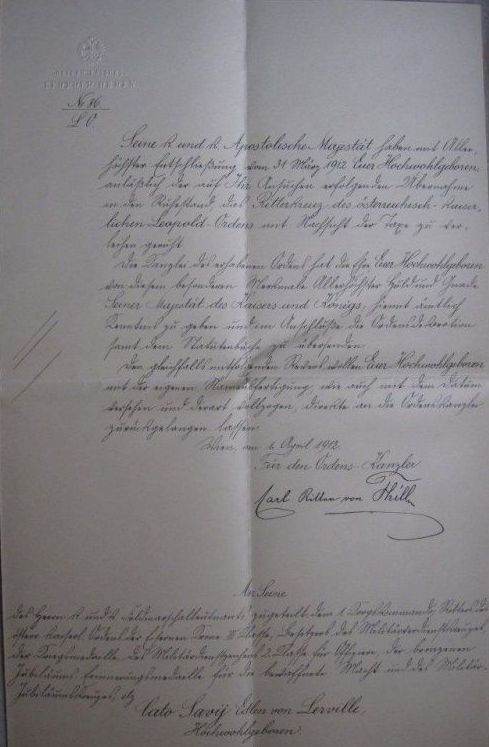 No 86
L. O.
Seine k. und k. Apostolische Majestät haben mit Aller-
höchster Entschließung vom 31. März 1912 Euer Hochwohlgeboren
anläßlich der auf Ihr Ansuchen erfolgenden Übernahme
in den Ruhestand das Ritterkreuz des österreichisch-kaiser-
lichen Leopold-Ordens mit Nachsicht der Taxe zu ver-
leihen geruht.
Die Kanzlei des erhabenen Ordens hat die Ehre Euer Hochwohlgeboren
von diesem besonderen Merkmale Allerhöchster Huld und Gnade
Seiner Majestät des Kaisers und Königs, hiemit amtlich
Kenntnis zu geben und im Anschluße die Ordensdekoration
samt dem Statutenbuche zu übersenden.
Den gleichfalls mitfolgenden Revers wollen Euer Hochwohlgeboren
mit der eigenen Namensfertigung, wie auch mit dem Datum
versehen und derart vollzogen, direkte an die Ordenskanzlei
zurückgelangen lassen.
Wien, am 6. April 1912.
Für den Ordens-Kanzler
Carl Ritter von
An Seine
des Herrn k. und k. Feldmarschalleutnants zugeteilt dem 1. Korpskommando, Ritters des
österr. kaiserl. Ordens der Eisernen Krone III. Klasse, Besitzers des Militärverdienstkreuzes
der Kriegsmedaille, des Militärdienstzeichens 2. Klasse für Offiziere, der bronzenen
Jubiläums-Erinnerungsmedaille für die bewaffnete Macht und des Militär-
Jubiläumskreuzes, etz.
Cato Savij Edlen von Lerville,
Hochwohlgeboren.